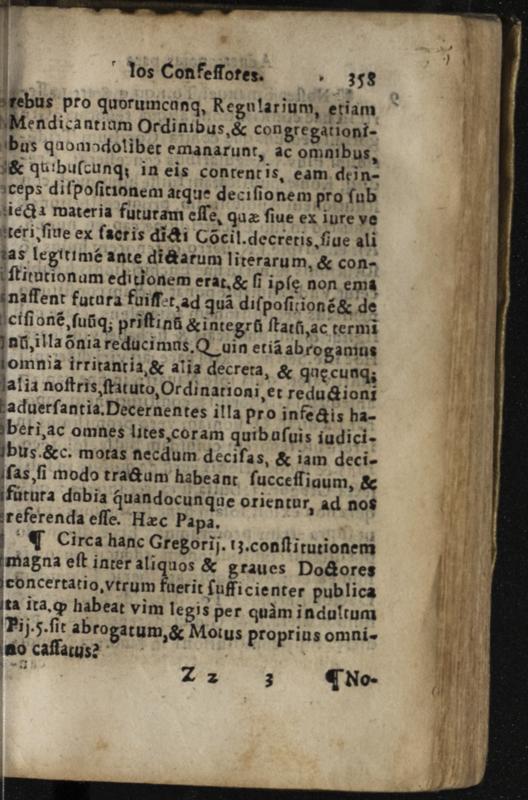 los Confessores. 358
rebus pro quorumcunq, Regularium, etiam
Mendicantium Ordinibus,& congregationi-
bus quomodolibet emanarunt, ac omnibus,
& quibuscunq; in eis contentis, eam dein-
ceps dispositionem atque decisionem pro sub
iecta materia futuram esse, quæ siue ex iure ve
teri, siue ex sacris dicti Cõcil. decretis, siue ali
as legitimé ante dictarum literarum, & con-
stitutionum editionem erat, & si ipsę non ema
nassent futura fuisset, ad quã dispositionẽ & de
cisionẽ, suũq; pristinũ & integrũ statũ, ac termi
nũ, illa õnia reducimus. Quin etiã abrogamus
omnia irritantia, & alia decreta, & quęcunq;
alia nostris, statuto, Ordinationi, et reductioni
aduersantia. Decernentes illa pro infectis ha-
beri, ac omnes lites, coram quibusuis iudici-
bus. &c. motas necdum decisas, & iam deci-
sas, si modo tractum habeant successiuum, &
futura dubia q́uandocunque orientur, ad nos
referenda esse. Hæc Papa.
¶ Circa hanc Gregorij. 13. constitutionem
magna est inter aliquos & graues Doctores
concertatio, vtrum fuerit sufficienter publica
ta ita, ꝙ habeat vim legis per quàm indultum
Pij. 5. sit abrogatum, & Motus proprius omni-
no cassatus?
Z z 3 ¶No-